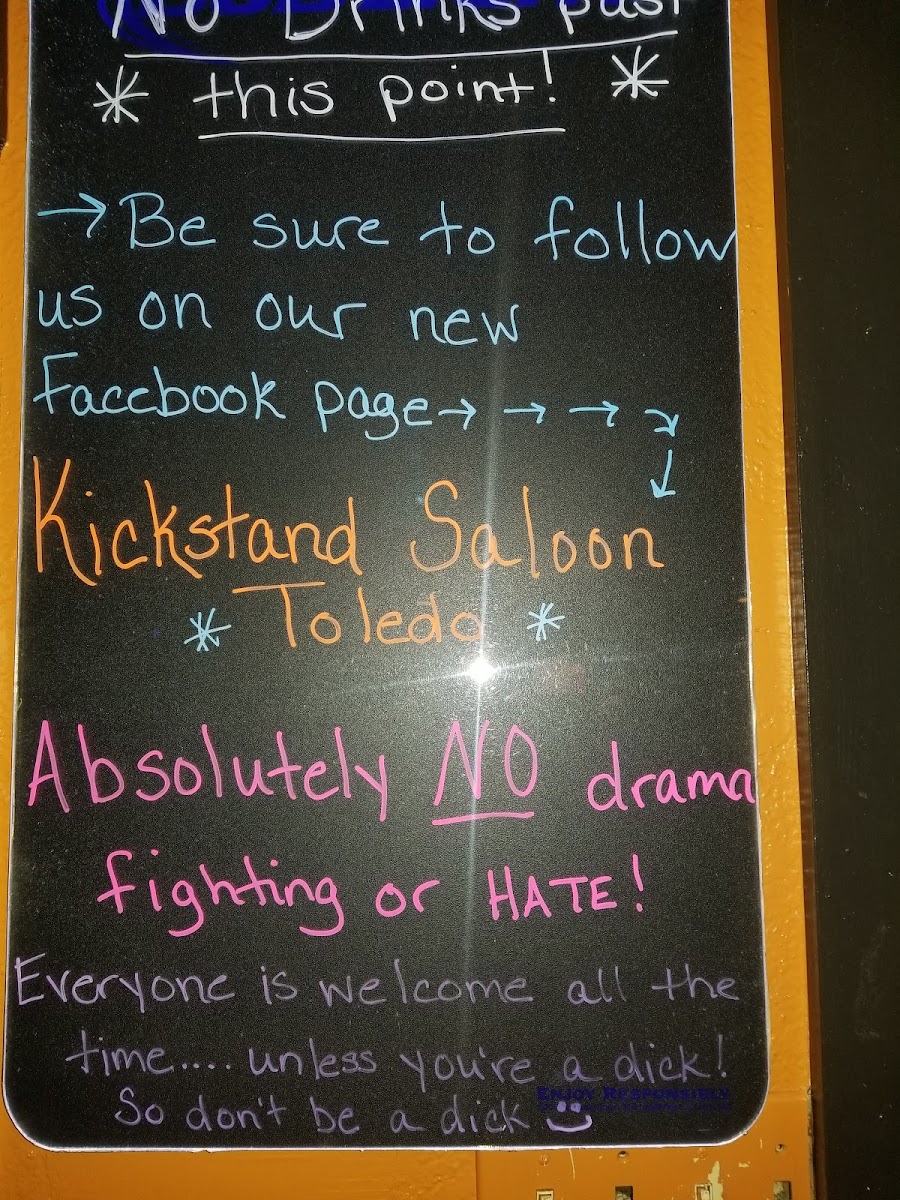 No Drinks past
* this point! *
→ Be sure to follow
us on our new
Facebook page → → → ↘
↓
Kickstand Saloon
* Toledo *
Absolutely NO drama
fighting or HATE!
Everyone is welcome all the
time.... unless you're a dick!
ENJOY RESPONSIBLY
So don't be a dick